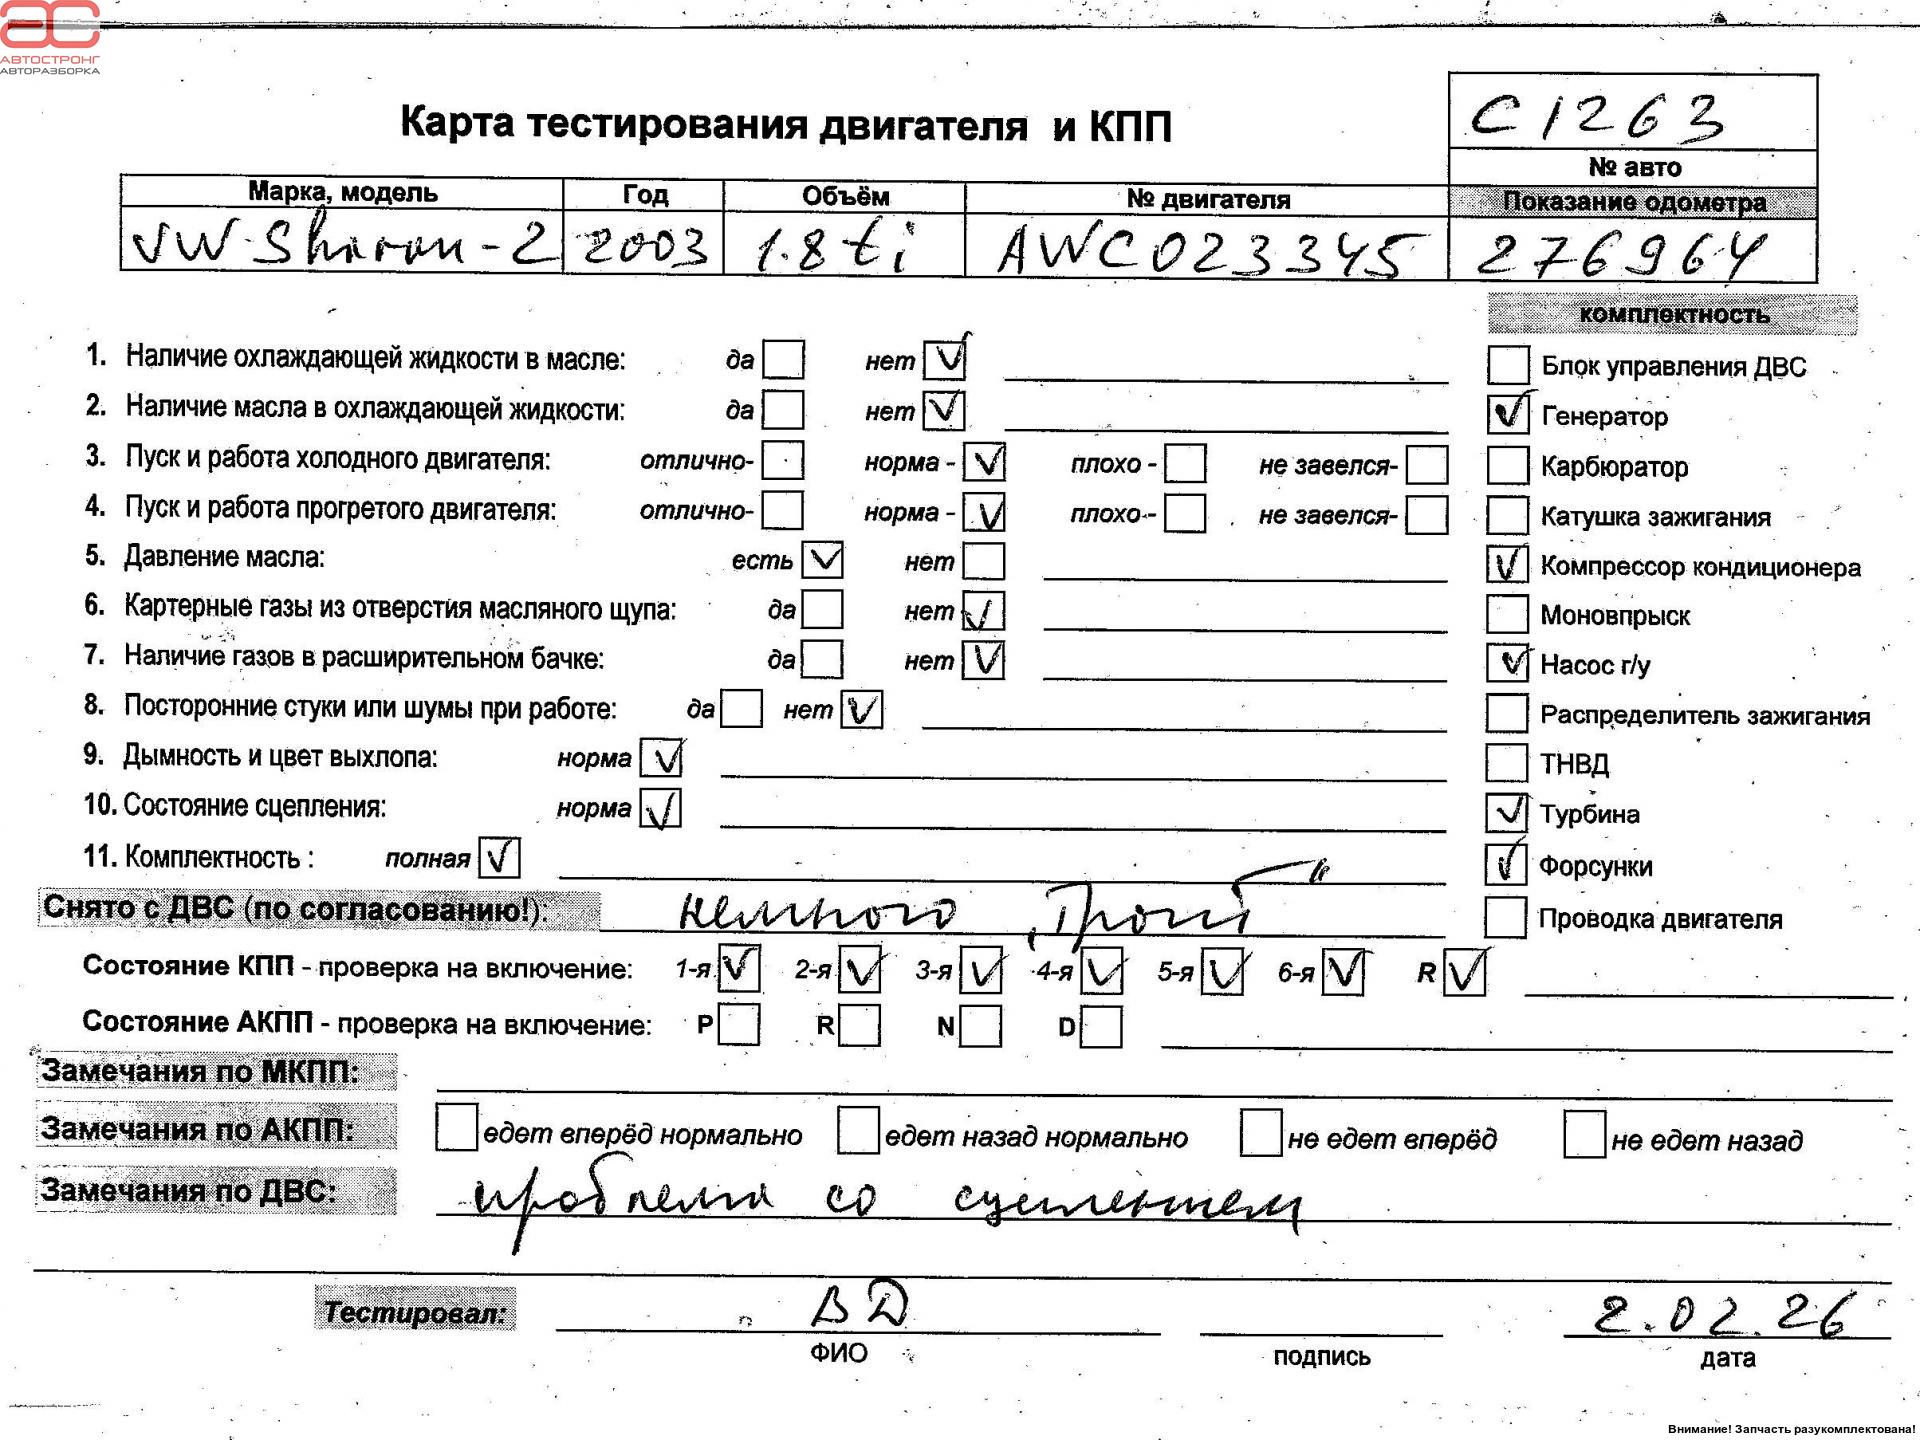 АС
АВТОСТРОНГ
АВТОРАЗБОРКА
Карта тестирования двигателя и КПП
C1263
№ авто
Марка, модель Год Объём № двигателя Показание одометра
VW Sharan-2 2003 1.8 ti AWC023345 276964
комплектность
1. Наличие охлаждающей жидкости в масле: да нет ✓
2. Наличие масла в охлаждающей жидкости: да нет ✓
3. Пуск и работа холодного двигателя: отлично- норма - ✓ плохо - не завелся-
4. Пуск и работа прогретого двигателя: отлично- норма - ✓ плохо- не завелся-
5. Давление масла: есть ✓ нет
6. Картерные газы из отверстия масляного щупа: да нет ✓
7. Наличие газов в расширительном бачке: да нет ✓
8. Посторонние стуки или шумы при работе: да нет ✓
9. Дымность и цвет выхлопа: норма ✓
10. Состояние сцепления: норма ✓
11. Комплектность : полная ✓
Блок управления ДВС
✓ Генератор
Карбюратор
Катушка зажигания
✓ Компрессор кондиционера
Моновпрыск
✓ Насос г/у
Распределитель зажигания
ТНВД
✓ Турбина
✓ Форсунки
Проводка двигателя
Снято с ДВС (по согласованию!): немного „Троит“
Состояние КПП - проверка на включение: 1-я ✓ 2-я ✓ 3-я ✓ 4-я ✓ 5-я ✓ 6-я ✓ R ✓
Состояние АКПП - проверка на включение: P R N D
Замечания по МКПП:
Замечания по АКПП: едет вперёд нормально едет назад нормально не едет вперёд не едет назад
Замечания по ДВС: проблема со сцеплением
Тестировал: ВД 2.02.26
ФИО подпись дата
Внимание! Запчасть разукомплектована!